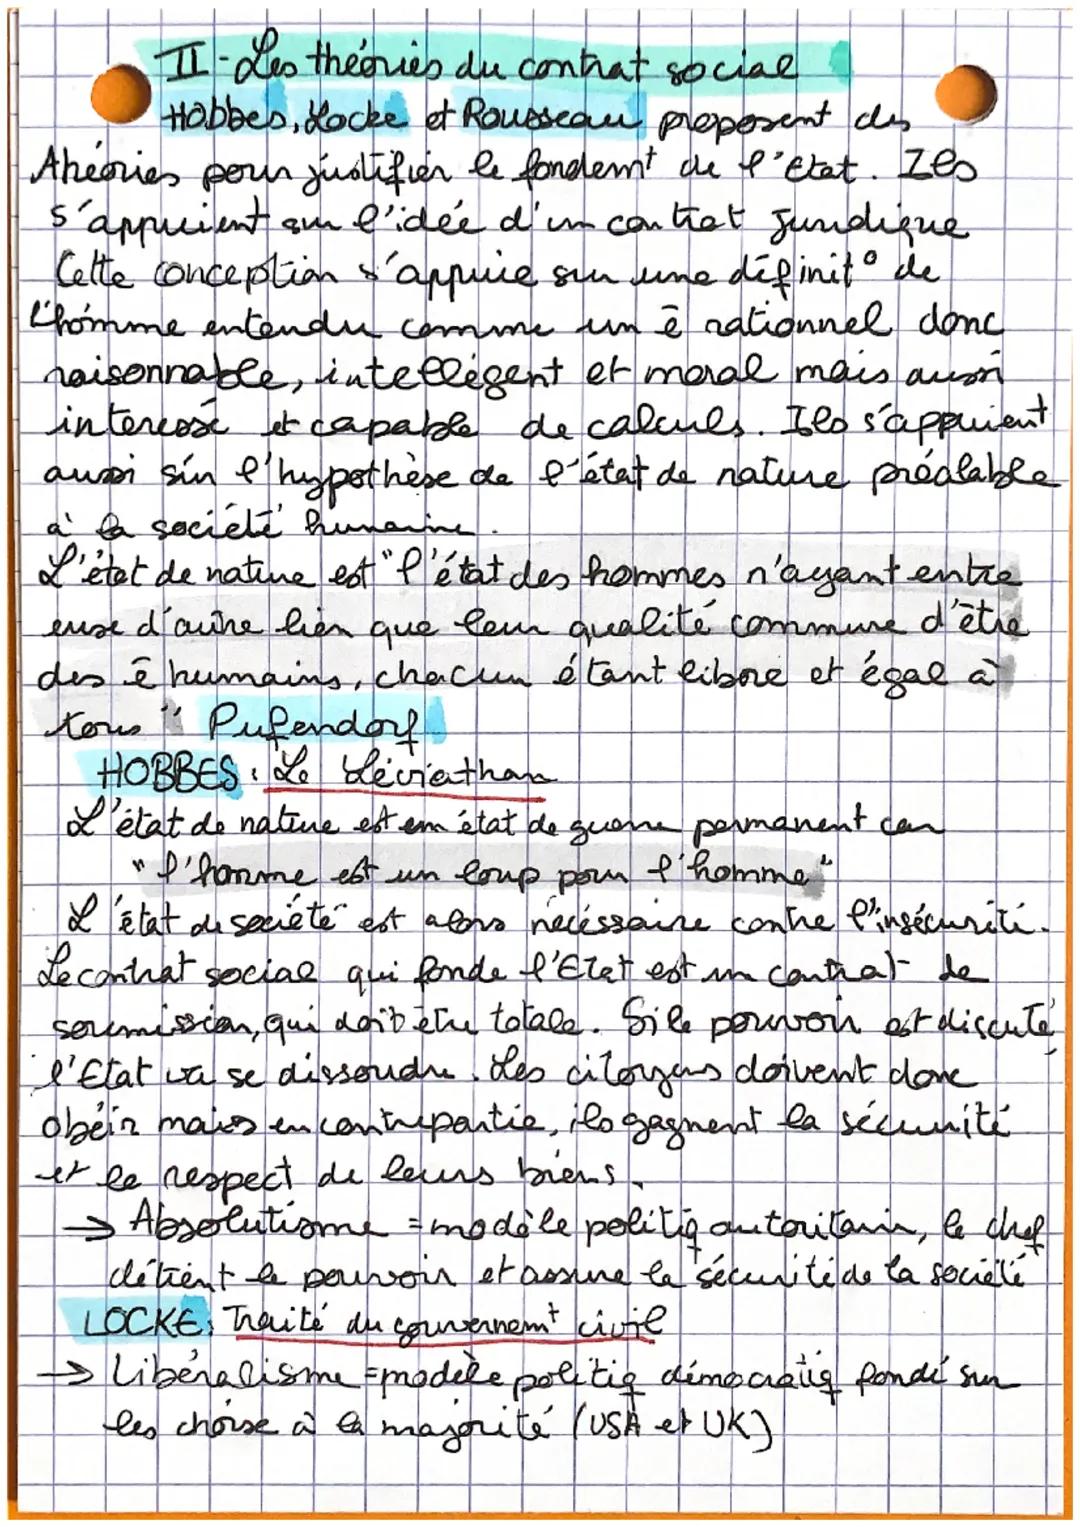 II - Les théories du contrat social
Hobbes, Locke et Rousseau proposent des
théories pour justifier le fondemt de l'Etat. Ils
s'appuient sur l'idée d'un contrat juridique
Cette conception s'appuie sur une définit° de
l'homme entendu comme un ê rationnel donc
raisonnable, intelligent et moral mais aussi
interessé et capable de calculs. Ils s'appuient
aussi sur l'hypothèse de l'état de nature préalable
à la société humaine.
L'état de nature est "l'état des hommes n'ayant entre
euse d'autre lien que leur qualité commune d'être
des ê humains, chacun étant libre et égal à
tous" Pufendorf
HOBBES : Le Léviathan
L'état de nature est em état de guerre permanent car
"l'homme est un loup pour l'homme"
L'état de société est alors nécéssaire contre l'insécurité.
Le contrat social qui fonde l'Etat est un contrat de
soumission, qui doit être totale. Si le pouvoir est discuté
l'Etat va se dissoudre. Les citoyens doivent donc
obéir mais en contrepartie, ils gagnent la sécurité
et le respect de leurs biens.
→ Absolutisme = modèle politiq autoritair, le chef
détient le pouvoir et assure la sécurité de la société
LOCKE : Traité du gouvernemt civil
→ Libéralisme = modèle politiq démocratiq fondé sur
les choise à la majorité (USA et UK)